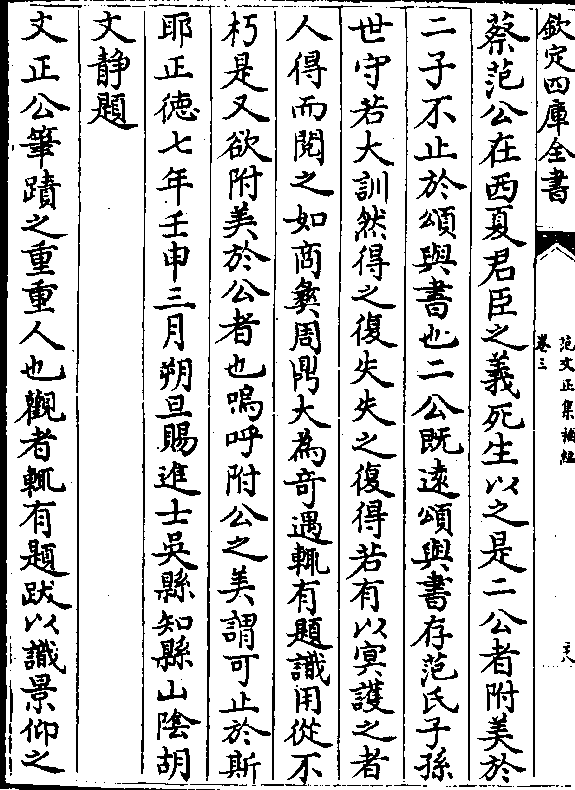 欽定四庫全書
范文正集補編
卷三
蔡范公在西夏君臣之義死生以之是二公者附美於
二子不止於頌與書也二公既遠頌與書存范氏子孫
世守若大訓然得之復失失之復得若有以冥護之者
人得而閱之如商彝周鼎大為奇遇輒有題識用從不
朽是又欲附美於公者也嗚呼附公之美謂可止於斯
耶正德七年壬申三月朔旦賜進士吳縣知縣山陰胡
文靜題
文正公筆蹟之重重人也觀者輒有題跋以識景仰之